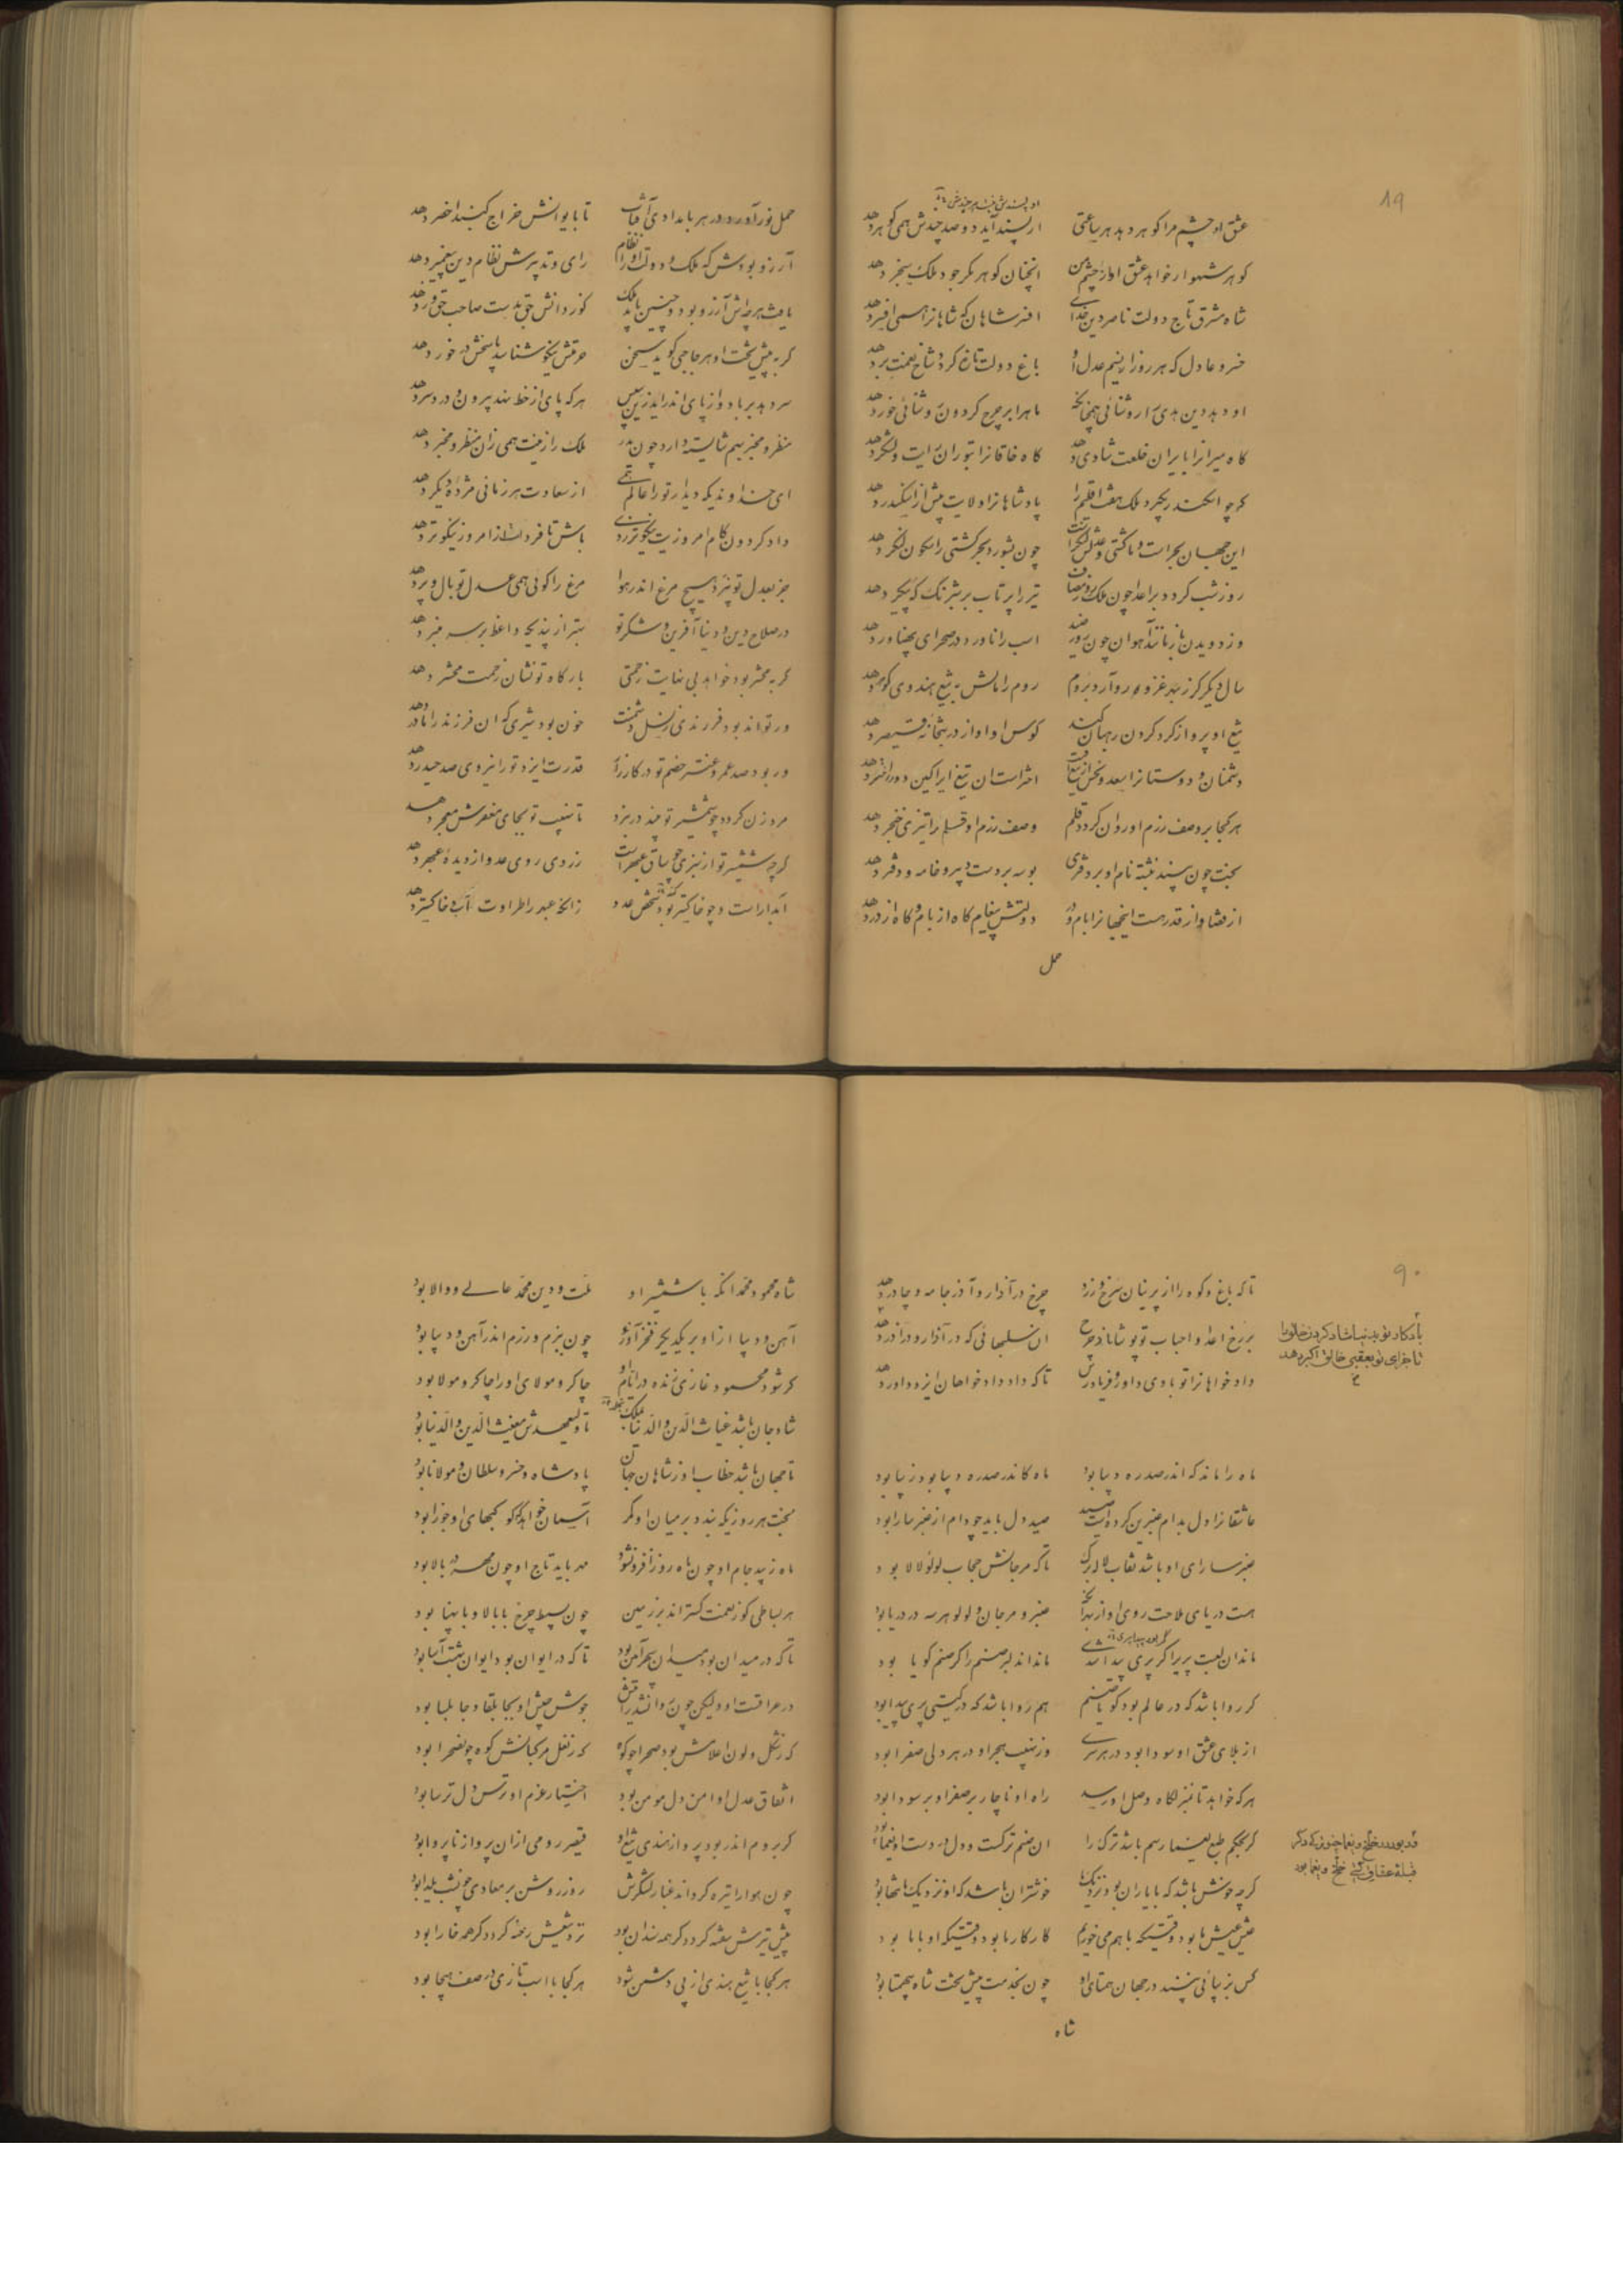 ۸۹
عشق او چشم مرا گوهر دهد هر ساعتی ار پسند آید دو صد چندش همی گوهر دهد
گوهر شهوار خواهد عشق او از چشم من انچنان گوهر مگر جود ملک سنجر دهد
شاه مشرق تاج دولت ناصر دین خدای افسر شاهان که شاهانرا همی افسر دهد
خسرو عادل که هر روز از نسیم عدل او باغ دولت تازه گردد شاخ نعمت بر دهد
او دهد دین هدی را روشنائی همچنانکه ماه را بر چرخ گردون روشنائی خور دهد
گاه میرانرا بایران خلعت شادی دهد گاه خاقانرا بتوران رایت و لشکر دهد
گرچه اسکندر بگیرد ملک هفت اقلیم را پادشاهانرا ولایت بیش از اسکندر دهد
این جهان بحر است و ما کشتی و عدلش لنگر است چون بشورد بحر کشتی را سکون لنگر دهد
روز شب گردد بر اعدا چون ملک روز مصاف تیر را پرتاب بر شبرنگ که پیکر دهد
وز دویدن باز ماند آهوان چون روز صید اسب را ناورد در صحرای پهناور دهد
سال دیگر کز پی غزو او رو آرد بروم روم را مالش به تیغ هندوی گوهر دهد
تیغ او پرواز گرد گردن رهبان کند کوس او آواز در بتخانه قیصر دهد
دشمنان و دوستانرا سعد و نحس از تیغ اوست اختر است ان تیغ ایرا کین دو را اختر دهد
هر کجا بر وصف رزم او روان گردد قلم وصف رزم او قلم را تیزی خنجر دهد
بخت چون بیند نبشته نام او بر دفتری بوسه بر دست دبیر و خامه و دفتر دهد
از قضا و از قدر هست اینجهانرا بام و در دولتش پیغام گاه از بام و گاه از در دهد
حمل
حمل نور آورد در هر بامدادی آفتاب تا بایوانش خراج گنبد اخضر دهد
آرزو بودش که ملک و دولت او را نظام رای و تدبیرش نظام دین پیغمبر دهد
یافت هر چه اش آرزو بود و چنین باید ملک کز دانش حق بدست صاحب حق ور دهد
گر به پیش تخت او هر حاجبی گوید سخن حرمتش نیکو شناسد پاسخش در خور دهد
سر دهد بر باد و از پای اندر آید زین سپس هر که پای از خط نهد بیرون و دردسر دهد
منظر و مخبر بهم شایسته دارد چون پدر ملک را زینت همی زان منظر و مخبر دهد
ای خداوندیکه دیدار تو را عالم همی از سعادت هر زمانی مژدهٔ دیگر دهد
داد گردون کام امروزت نیکوتر ز دی باش تا فردات از امروز نیکوتر دهد
جز بعدل تو نپرد هیچ مرغ اندر هوا مرغ را گوئی همی عدل تو بال و پر دهد
در صلاح دین و دنیا آفرین و شکر تو بهتر از پندیکه واعظ بر سر منبر دهد
گر به محشر بود خواهد بی نهایت زحمتی بارگاه تو نشان زحمت محشر دهد
ور تواند بود فرزندی ز نسل دشمنت خون بود شیری که ان فرزند را مادر دهد
ور بود صد عمرو عنتر خصم تو در کارزار قدرت ایزد تو را نیروی صد حیدر دهد
مرد زن گردد چو شمشیر تو بیند در نبرد تا نهیب تو بجای مغفرش معجر دهد
گرچه شمشیر تو از تیزی چو ساق عبهر است زردی روی عدو از دیدهٔ عبهر دهد
آبدار است و چو خاکستر کند شخص عدو زانکه عبهر را طراوت آب و خاکستر دهد
۹۰
تا که باغ و کوه را از پرنیان سرخ و زرد چرخ در آذار و آذر جامه و چادر دهد
بر رخ اعدا و احباب تو پوشاناد چرخ ان سلبهائی که در آذار و در آذر دهد
دادخواهانرا تو بادی داور و فریادرس تا که داد دادخواهان ایزد داور دهد
باد کار تو بدنیا شاد کردن خلق را
تا جزای تو بعقبی خالق اکبر دهد
ماه را ماند که اندر صدرهٔ دیبا بود ماه کاندر صدرهٔ دیبا بود زیبا بود
عاشقانرا دل بدام عنبرین کرده است صید صید دل باید چو دام از عنبر سارا بود
عنبر سارای او باشد نقاب لاله برگ تا که مرجانش حجاب لولؤ لالا بود
هست دریای ملاحت روی او از بهر آنک عنبر و مرجان و لولو هر سه در دریا بود
ماند ان لعبت پریرا گر پری پیدا شدی ماند ان دلبر صنم را گر صنم گویا بود
گر روا باشد که در عالم بود گویا صنم هم روا باشد که در گیتی پری پیدا بود
از بلای عشق او سودا بود در هر سری وز نهیب هجر او در هر دلی صفرا بود
هر که خواهد تا بنزلگاه وصل او رسد راه او ناچار بر صفرا و بر سودا بود
گر بحکم طبع یغما رسم باشد ترک را ان صنم ترکست و دل در دست او یغما بود
گرچه خوش باشد که با یاران بود نزدیک ما خوشتر ان باشد که او نزدیک ما تنها بود
عیش عیش ما بود وقتیکه با هم می خوریم کار کار ما بود وقتیکه او با ما بود
کس بزیبائی نبیند در جهان همتای او چون بخدمت پیش تخت شاه بیهمتا بود
شاه
شاه محمود محمد انکه با شمشیر او ملت و دین محمد عالی و والا بود
آهن و دیبا ازو بر یکدیگر فخر آورد چون ببزم و رزم اندر آهن و دیبا بود
گر شود محمود غازی زنده در ایام او چاکر و مولای او را چاکر و مولا بود
شادمان باشد غیاث الدین والدنیا بملک تا ولیعهدش مغیث الدین والدنیا بود
تا جهان باشد خطاب او ز شاهان جهان پادشاه و خسرو سلطان و مولانا بود
بخت هر روزیکه بندد بر میان او کمر آسمان خواهد که کوکبهای او جوزا بود
ماه زیبد جام او چون ماه روز افزون شود مهر باید تاج او چون مهر بر بالا بود
هر بساطی کو ز نعمت گستراند بر زمین چون بسیط چرخ با بالا و با پهنا بود
تا که در میدان بود میدان سپهر آئین بود تا که در ایوان بود ایوان بهشت آسا بود
در عراقست او ولیکن چون پراکنده شد جوش جیش او بجابلقا و جابلسا بود
که ز شکل و لون اعلامش بود صحرا چو کوه که ز نعل مرکبانش کوه چو صحرا بود
اتفاق عدل او امن دل مومن بود اختیار عزم او ترس دل ترسا بود
گر بروم اندر بود پرواز هندی تیغ او قیصر رومی از ان پرواز ناپروا بود
چون هوا را تیره گرداند غبار لشکرش روز روشن بر معادی چون شب یلدا بود
پیش تیرش سفته گردد گر همه سندان بود نزد تیغش رخنه گردد گر همه خارا بود
هر کجا با تیغ هندی از پی دشمن شود هر کجا با اسب تازی در صف هیجا بود